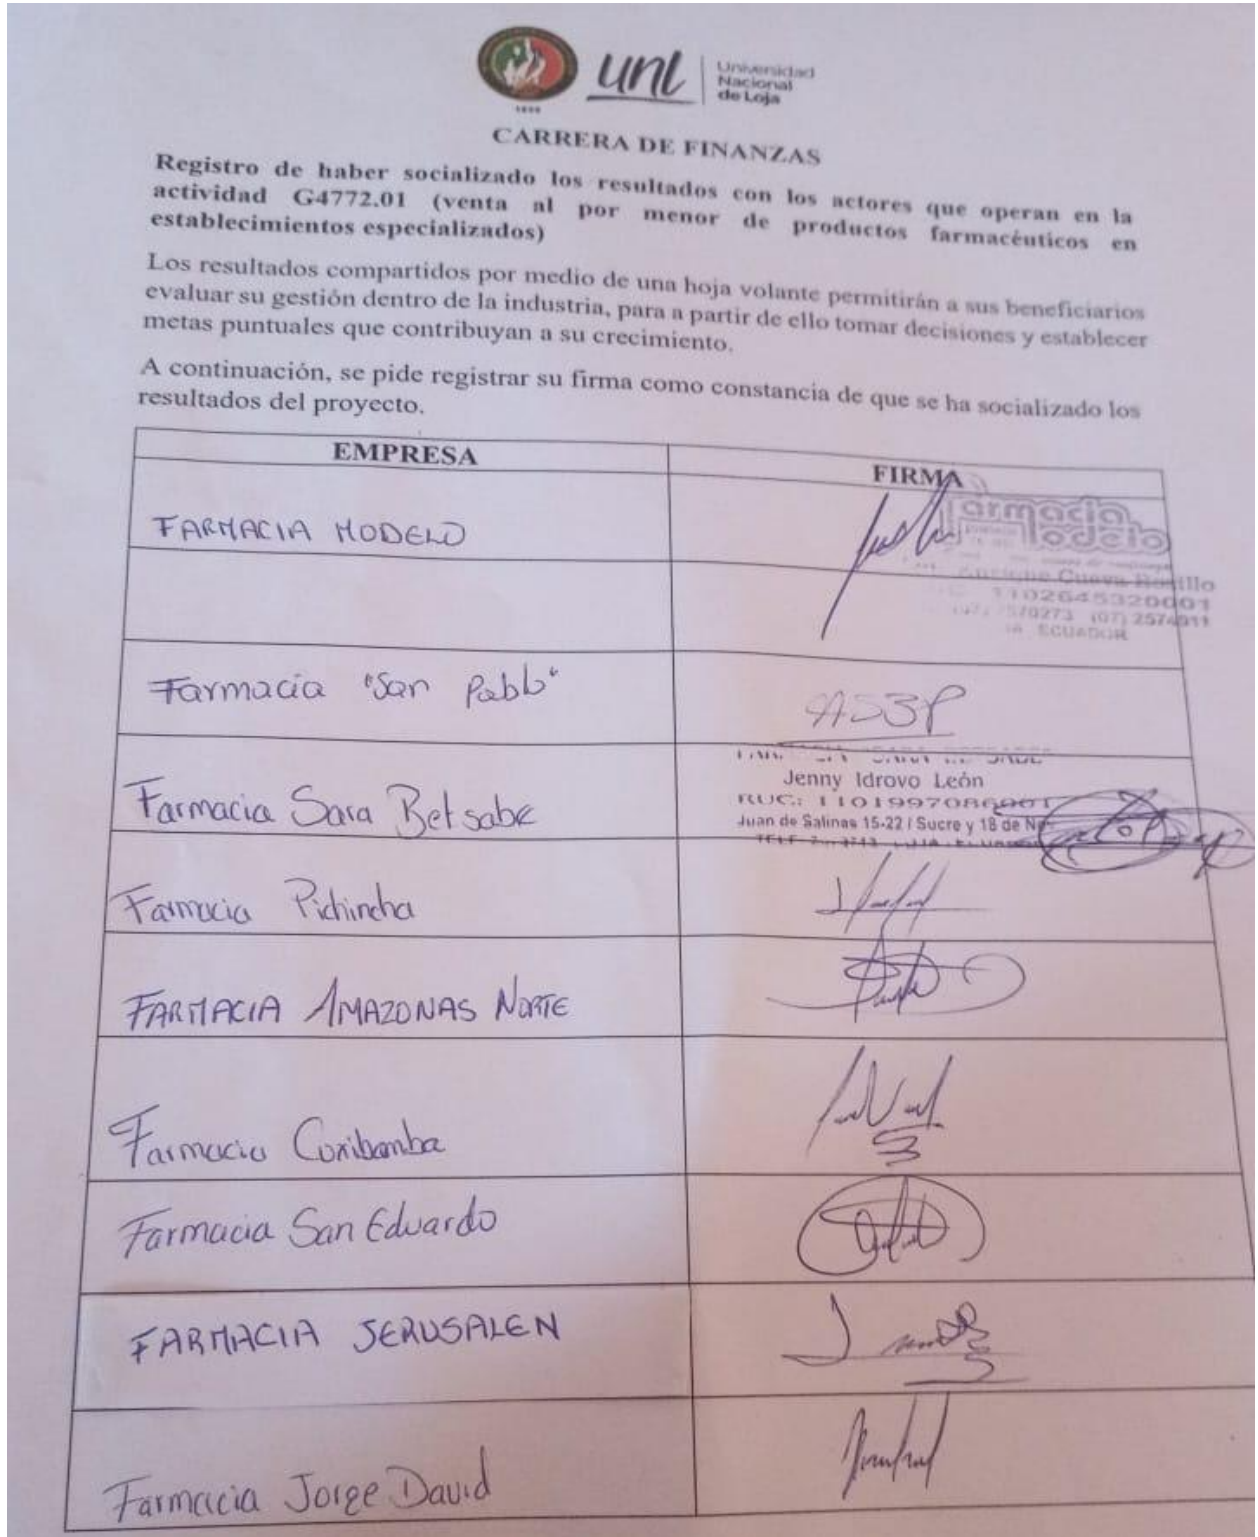 1859
unl
Universidad
Nacional
de Loja
CARRERA DE FINANZAS
Registro de haber socializado los resultados con los actores que operan en la
actividad G4772.01 (venta al por menor de productos farmacéuticos en
establecimientos especializados)
Los resultados compartidos por medio de una hoja volante permitirán a sus beneficiarios
evaluar su gestión dentro de la industria, para a partir de ello tomar decisiones y establecer
metas puntuales que contribuyan a su crecimiento.
A continuación, se pide registrar su firma como constancia de que se ha socializado los
resultados del proyecto.
EMPRESA
FIRMA
FARMACIA MODELO
farmacia
Modelo
Cueva
1102645320001
2570273 (07) 2574911
ECUADOR
Farmacia "San Pablo"
Farmacia Sara Betsabe
Jenny Idrovo León
RUC: 1101997086001
Juan de Salinas 15-22 / Sucre y 18 de
Farmacia Pichincha
FARMACIA AMAZONAS NORTE
Farmacia Cuxibamba
Farmacia San Eduardo
FARMACIA JERUSALEN
Farmacia Jorge David